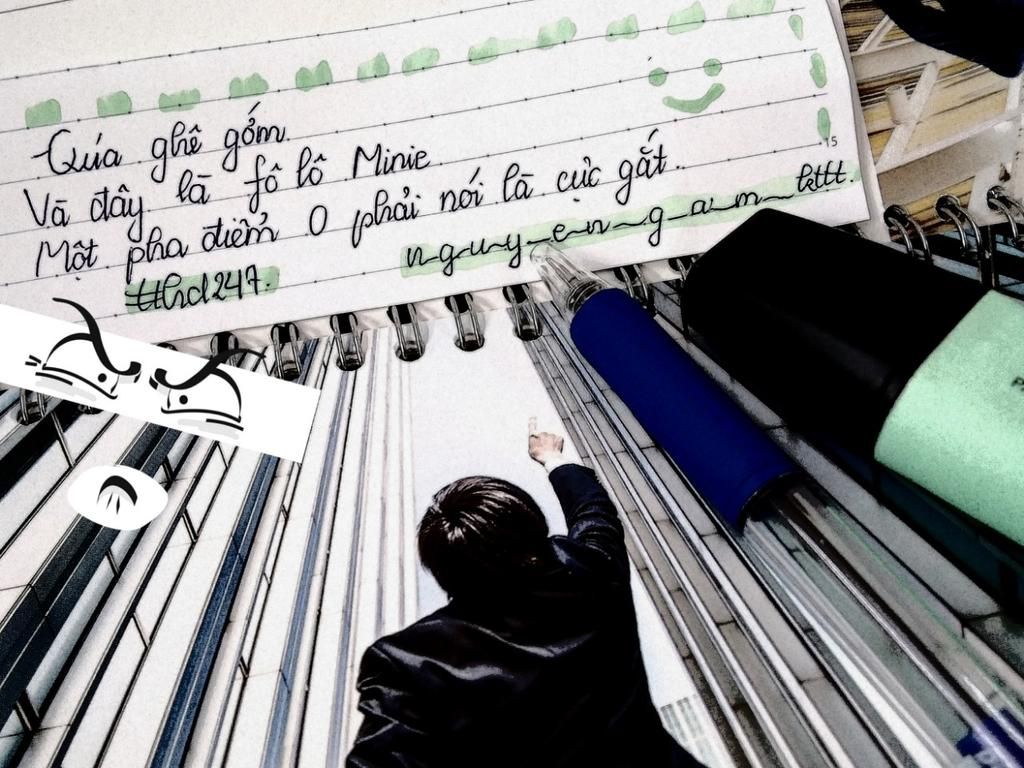 Qúa ghê gớm
Và đây là fô lô Minie
Một pha điểm 0 phải nói là cực gắt.
n_g_u_y_ê_n_g_a_m_kttt.
#hd247.
15